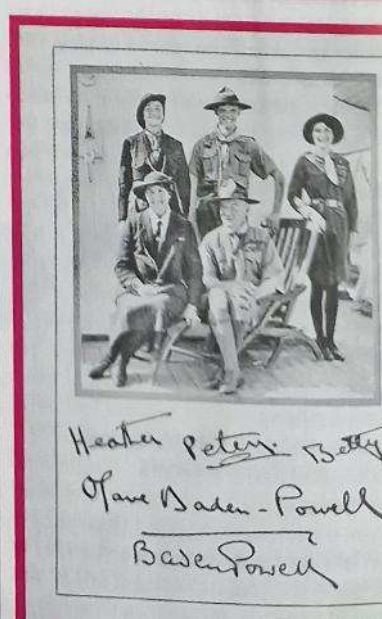 Heather Peter. Betty
Olave Baden-Powell
Baden Powell